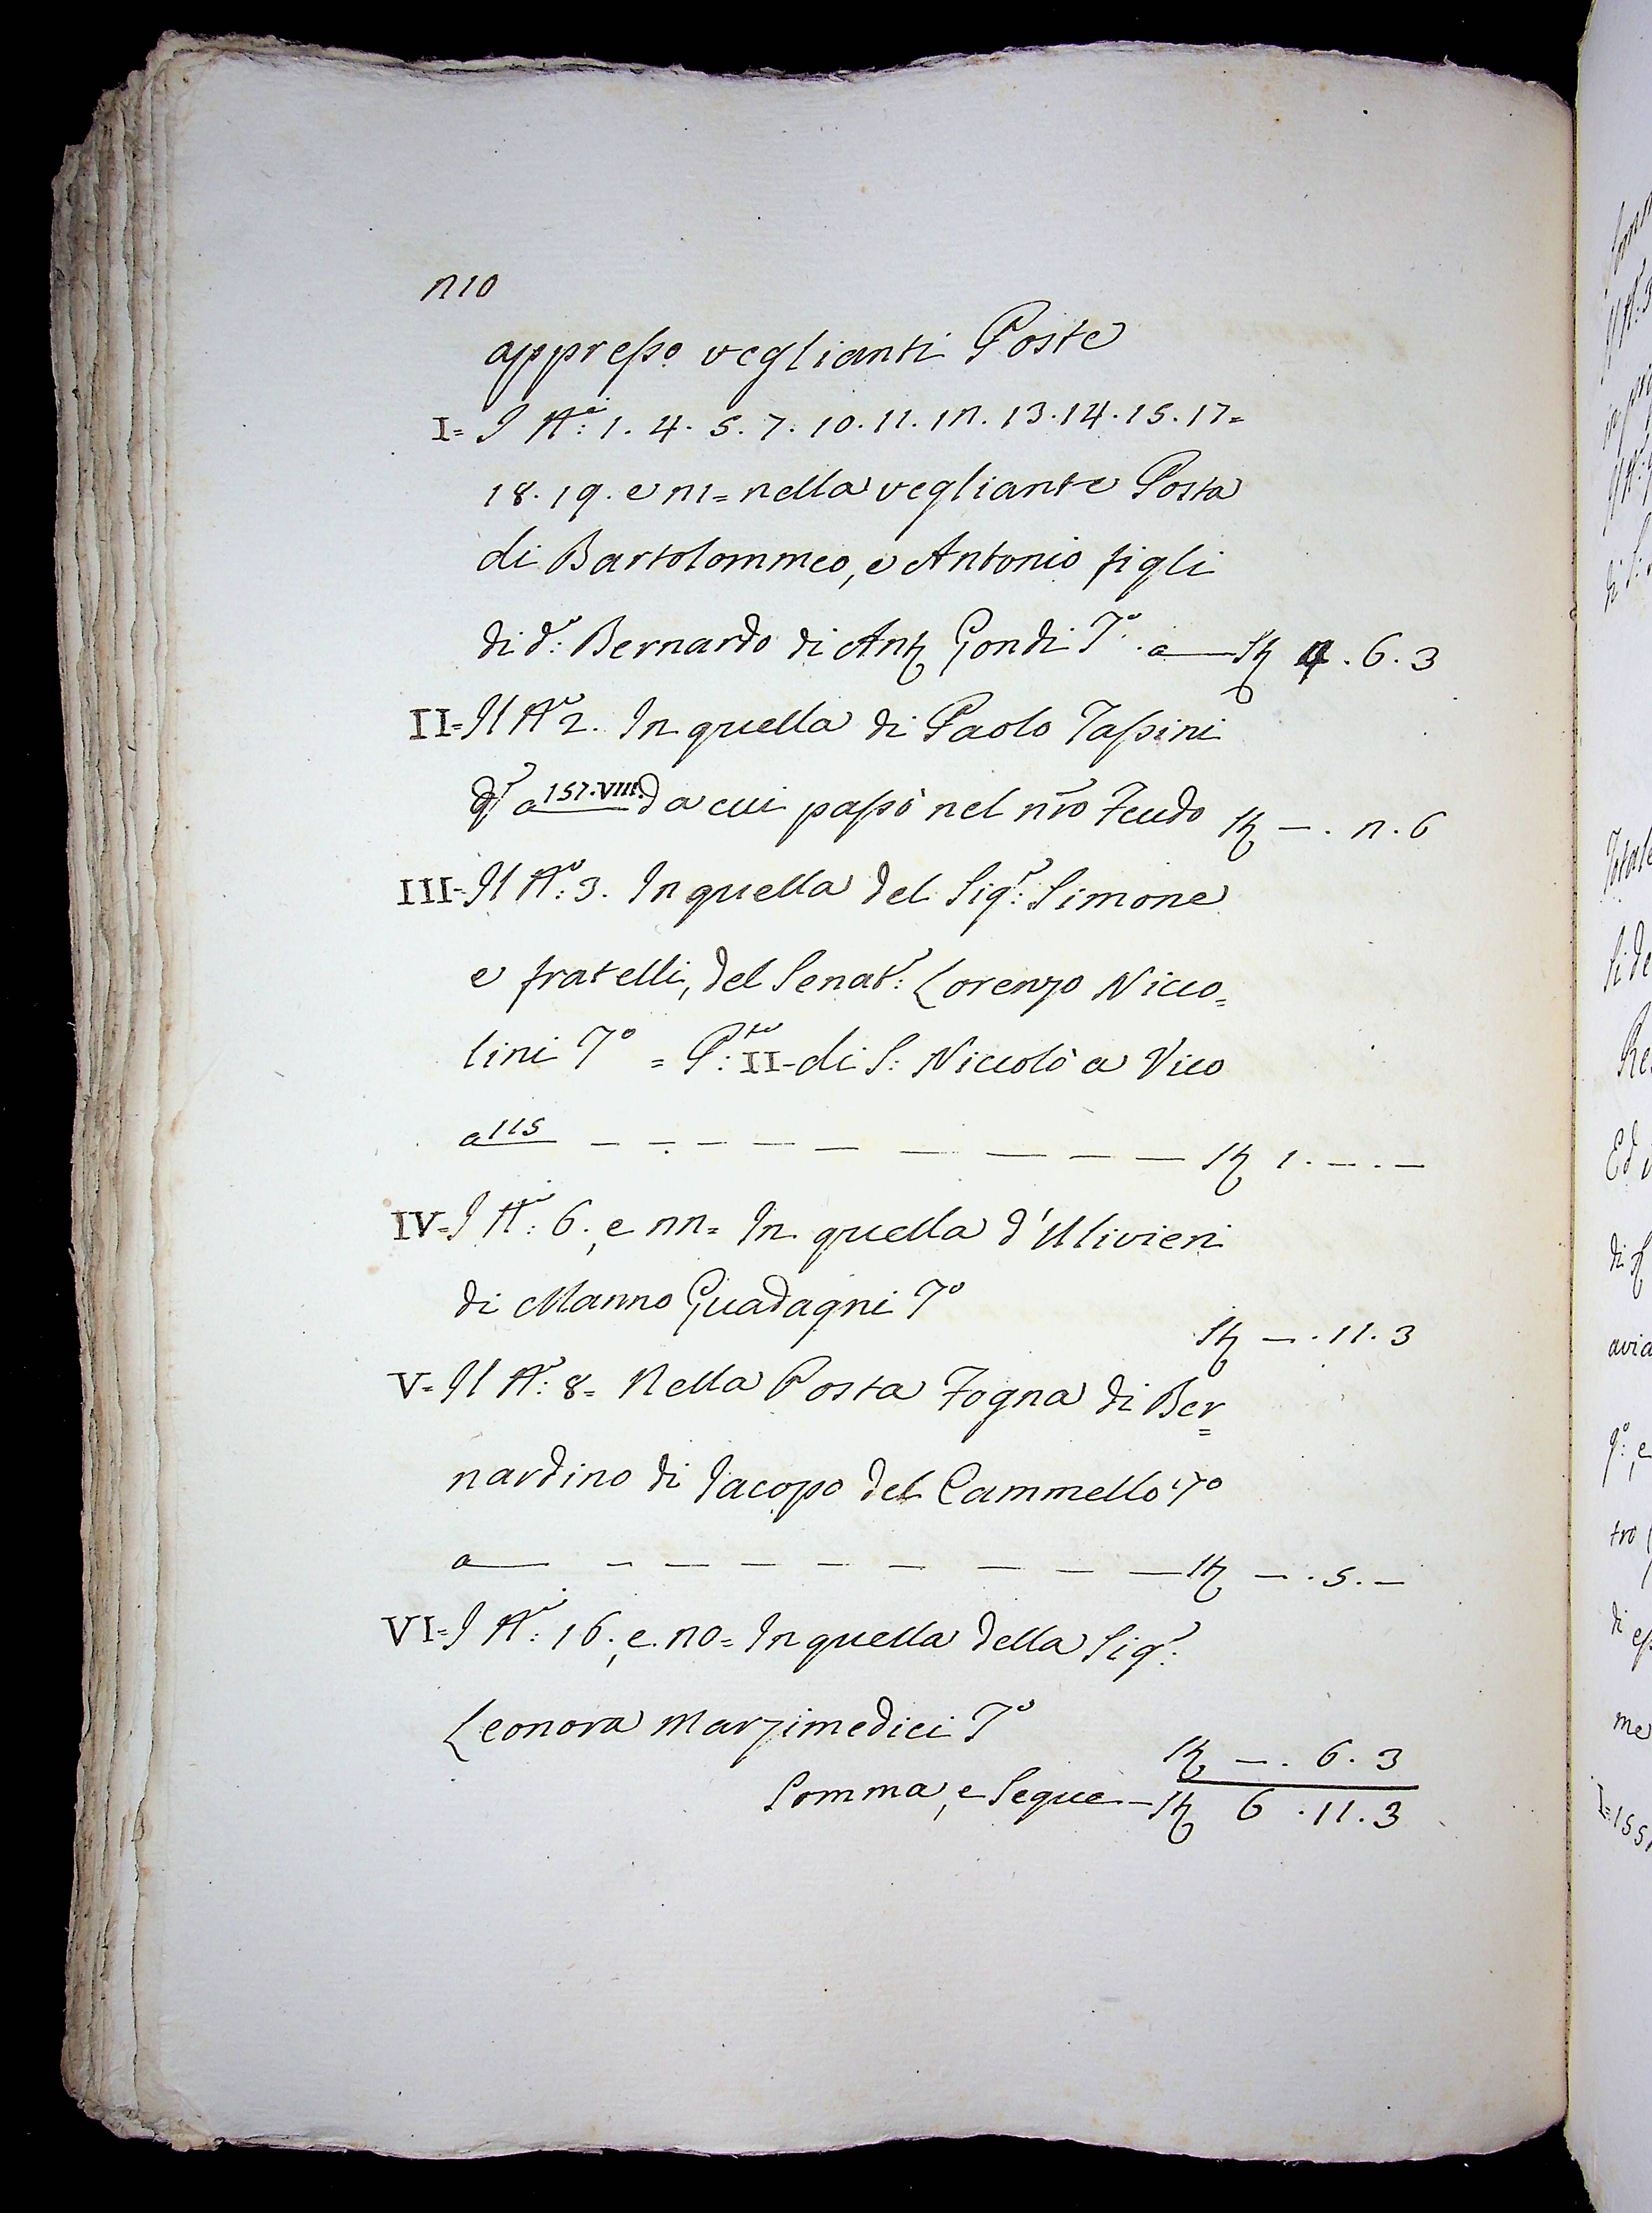 210
appresso veglianti Poste
I= I N.i: 1. 4. 5. 7. 10. 11. 12. 13. 14. 15. 17=
18. 19. e 21= nella vegliante Posta
di Bartolommeo, e Antonio figli
di d.o: Bernardo di Ant. Gondi 7o. a — St 4. 6. 3
II= Il No 2. In quella di Paolo Tassini
a 157.VIII. da cui passò nel nro Feudo St —. 2. 6
III= Il No: 3. In quella del Sigr: Simone
e fratelli, del Senatr: Lorenzo Nicco=
lini 7o = P.to: II- di S: Niccolò a Vico
a 115 — — — — — — — — St 1. —. —
IV= I N.i: 6., e 22= In quella d'Ulivieri
di Manno Guadagni 7o
St —. 11. 3
V= Il No: 8= Nella Posta Fogna di Ber=
nardino di Jacopo del Cammello 7o
a — — — — — — — — St —. 5. —
VI= I N.i: 16., e 20= In quella della Sigr:
Leonora Marzimedici 7o
St —. 6. 3
Somma, e Segue — St 6. 11. 3